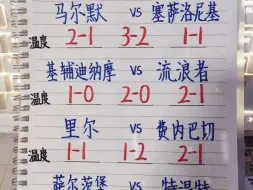 马尔默 VS 塞萨洛尼基
温度 2-1 3-2 1-1
基辅迪纳摩 VS 流浪者
温度 1-0 2-0 2-1
里尔 VS 费内巴切
温度 1-1 1-2 2-1
萨尔茨堡 VS 特温特